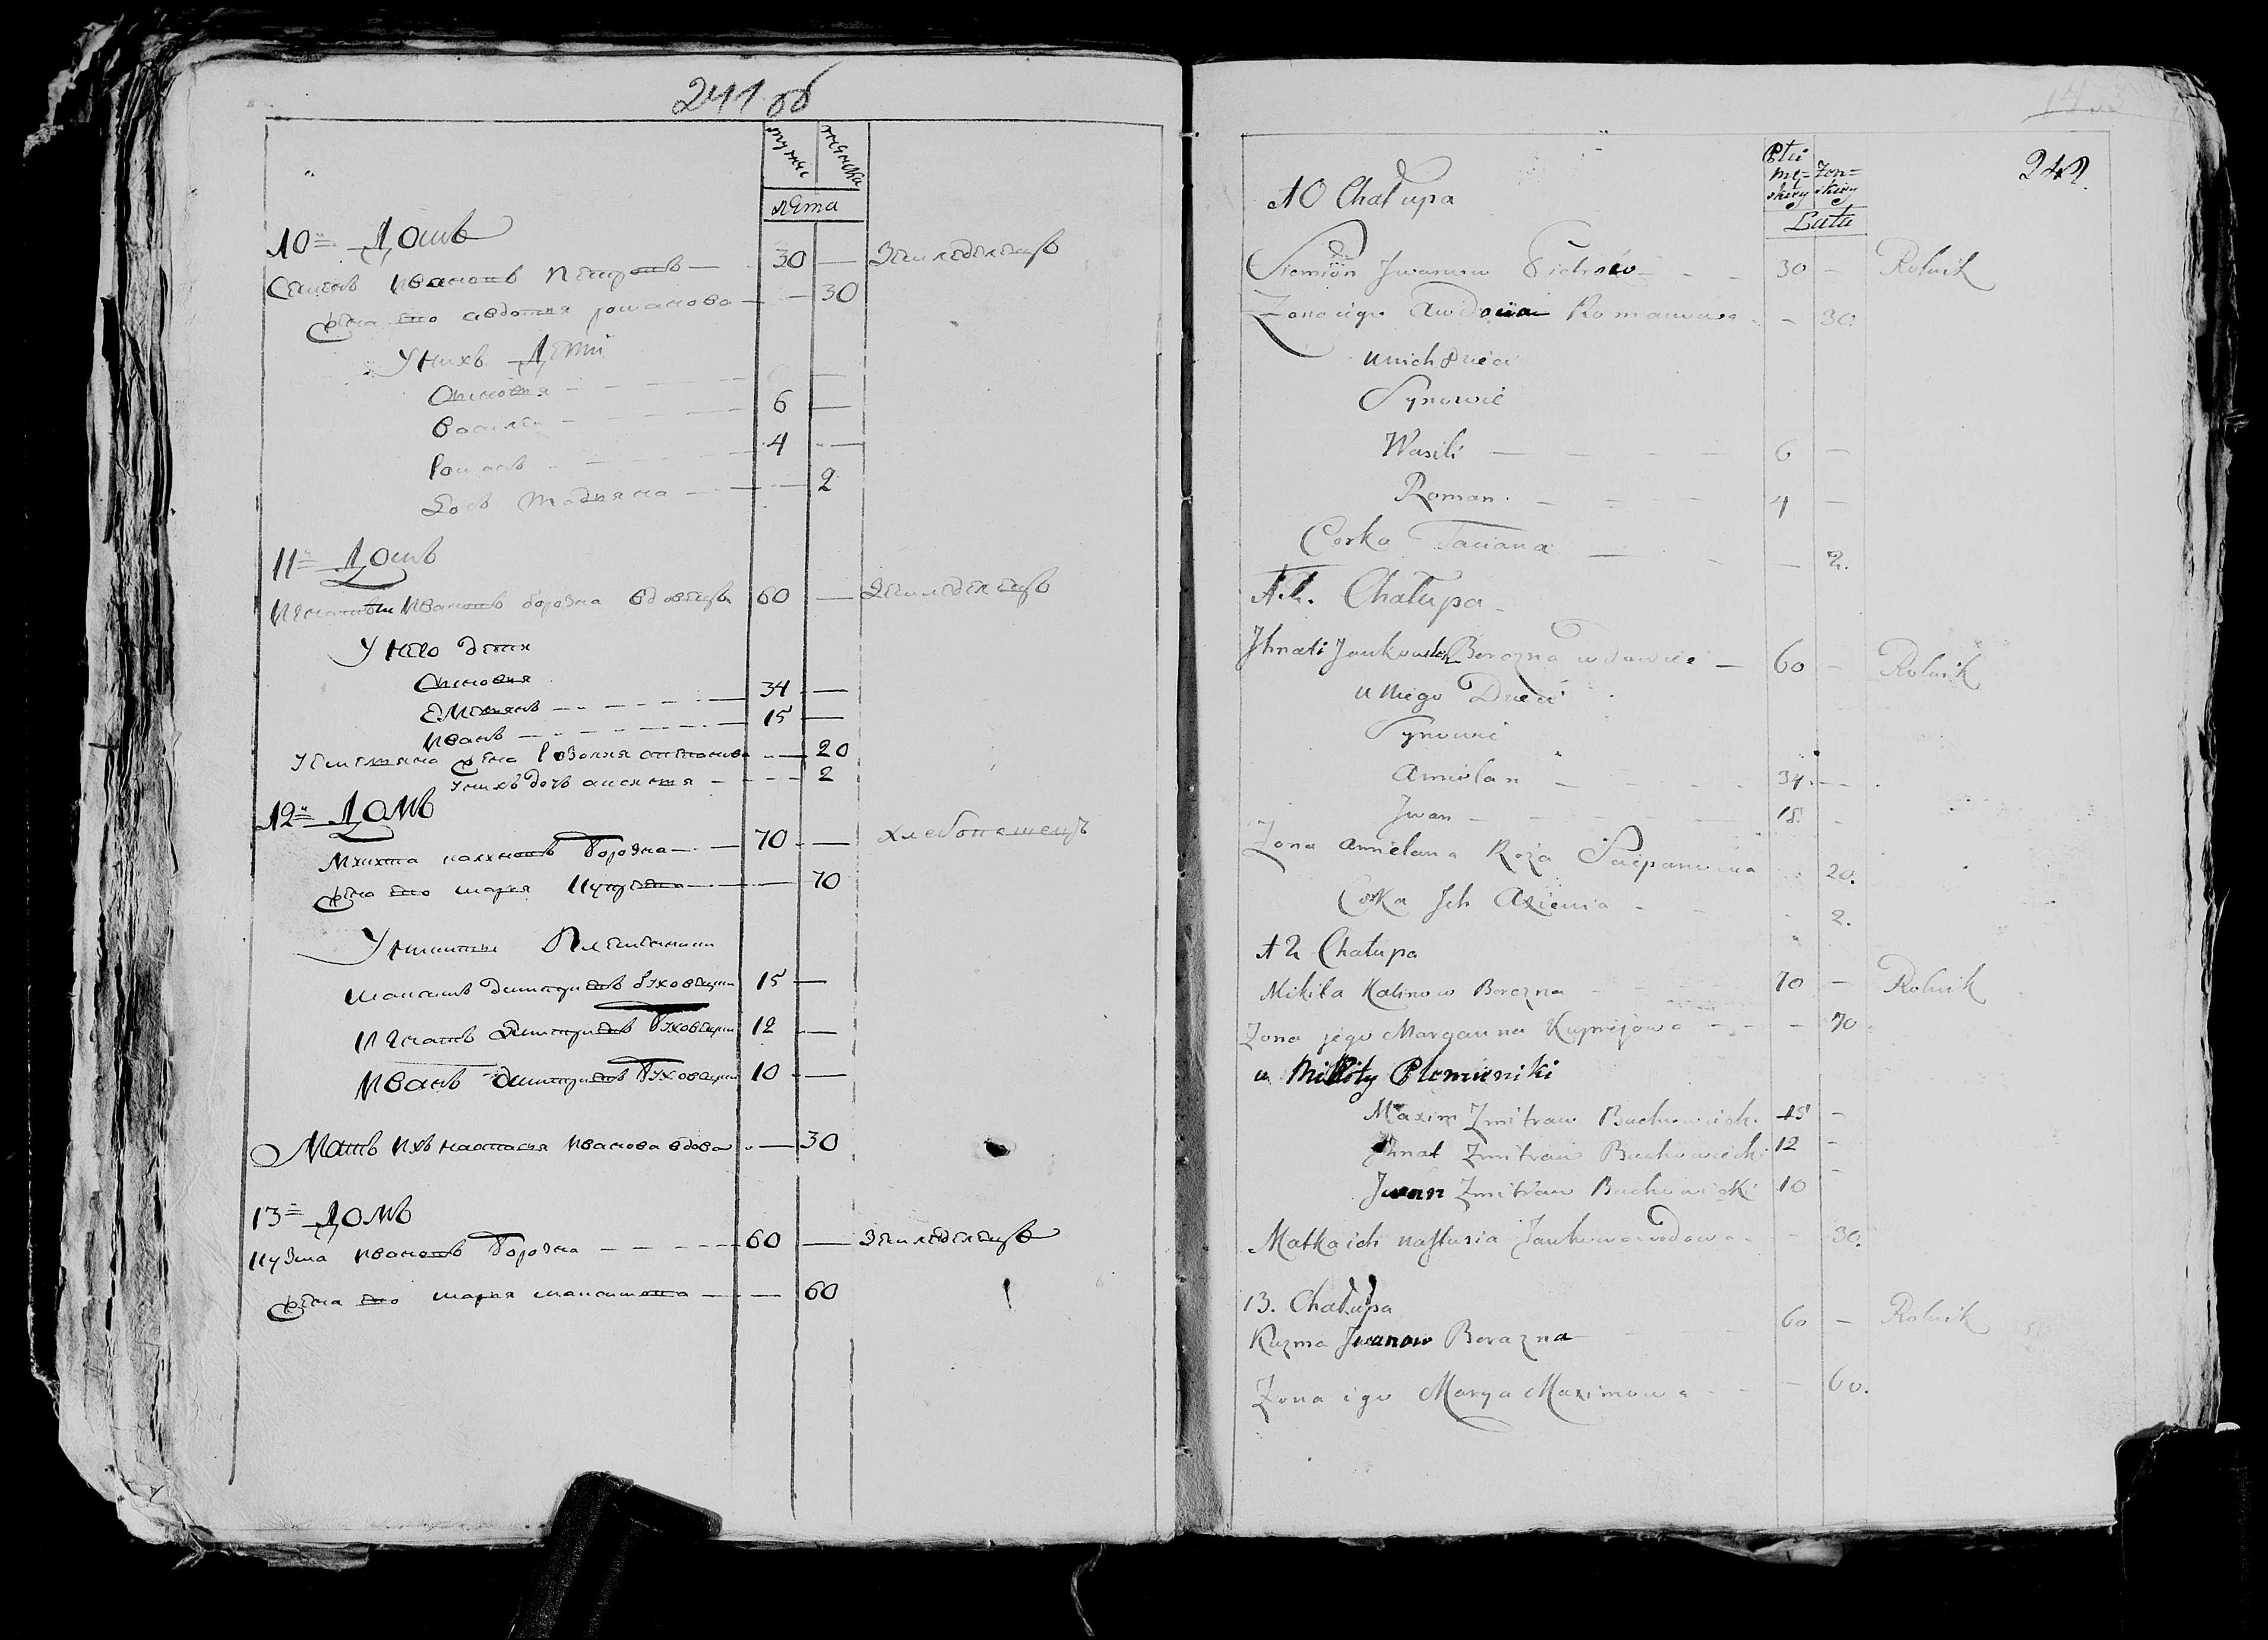 241 об
мужес
женска
лета
10. Домъ
Семенъ Ивановъ Петровъ — 30 — Земледелецъ
жена ево авдотия романова — — 30
У нихъ Дети
Сыновия
Василеи 6 —
Романъ 4 —
Дочь татияна — 2
11. Домъ
Игнатеи Ивановъ борозна вдовецъ 60 — Земледелецъ
У него дети
Сыновия
Емелянъ 34 —
Иванъ 15 —
У емеляна жена степанова — 20
У нихъ дочь аксения — 2
12. Домъ
Микита калиновъ борозна — 70 — хлебопашецъ
жена ево мария — 70
У микиты Племянники
максимъ дмитриевъ буховецки 15 —
Игнатъ дмитриевъ буховецки 12 —
Иванъ дмитриевъ буховецки 10 —
Мать ихъ настасия иванова вдова — 30
13. Домъ
Кузма ивановъ борозна — 60 — Земледелецъ
жена ево мария максимова — 60
242.
Płci
mę-
skiey
Żeń-
skiey
Lata
10 Chałupa
Siemion Jwanow Pietrow — 30 — Rolnik
Zona iego Awdocia Romanowa — 30.
u nich Dzieci
Synowie
Wasili — 6 —
Roman. — 4 —
Corka Taciana — — 2.
11. Chałupa
Jhnati Jankowicz Borozna wdowiec — 60 — Rolnik
u Niego Dzieci
Synowie
Amielan — 34. —
Jwan — 18. —
Zona Amielana Roza Sciepanowna 20.
Corka Jch Axienia — 2.
12 Chałupa
Mikita Kalinow Borozna 70 — Rolnik
Zona jego Maryanna Kuprejowa — — 70.
u Mikity Plemieniki
Maxim Zmitrow Buchowiecki 15 —
Jhnat Zmitrow Buchowiecki 12 —
Jwan Zmitrow Buchowiecki 10 —
Matka ich nastusia Jankowa wdowa — 30.
13. Chałupa
Kuzma Jwanow Borozna 60 — Rolnik
Zona igo Marya Maximowa — 60.